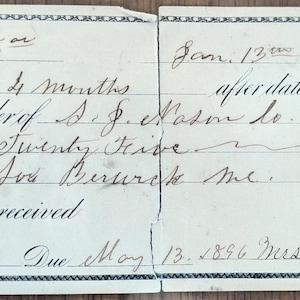 Jan. 13
4 months after dat
er of S. J. Nason Co.
Twenty Five
So. Berwick Me.
received
Due May 13. 1896 Mrs